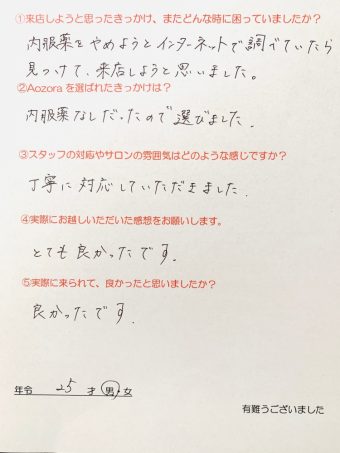 ①来店しようと思ったきっかけ、またどんな時に困っていましたか？
内服薬をやめようとインターネットで調べていたら
見つけて、来店しようと思いました。
②Aozoraを選ばれたきっかけは？
内服薬なしだったので選びました.
③スタッフの対応やサロンの雰囲気はどのような感じですか？
丁寧に対応していただきました.
④実際にお越しいただいた感想をお願いします。
とても良かったです.
⑤実際に来られて、良かったと思いましたか？
良かったです.
年令 25 才 男・女
有難うございました